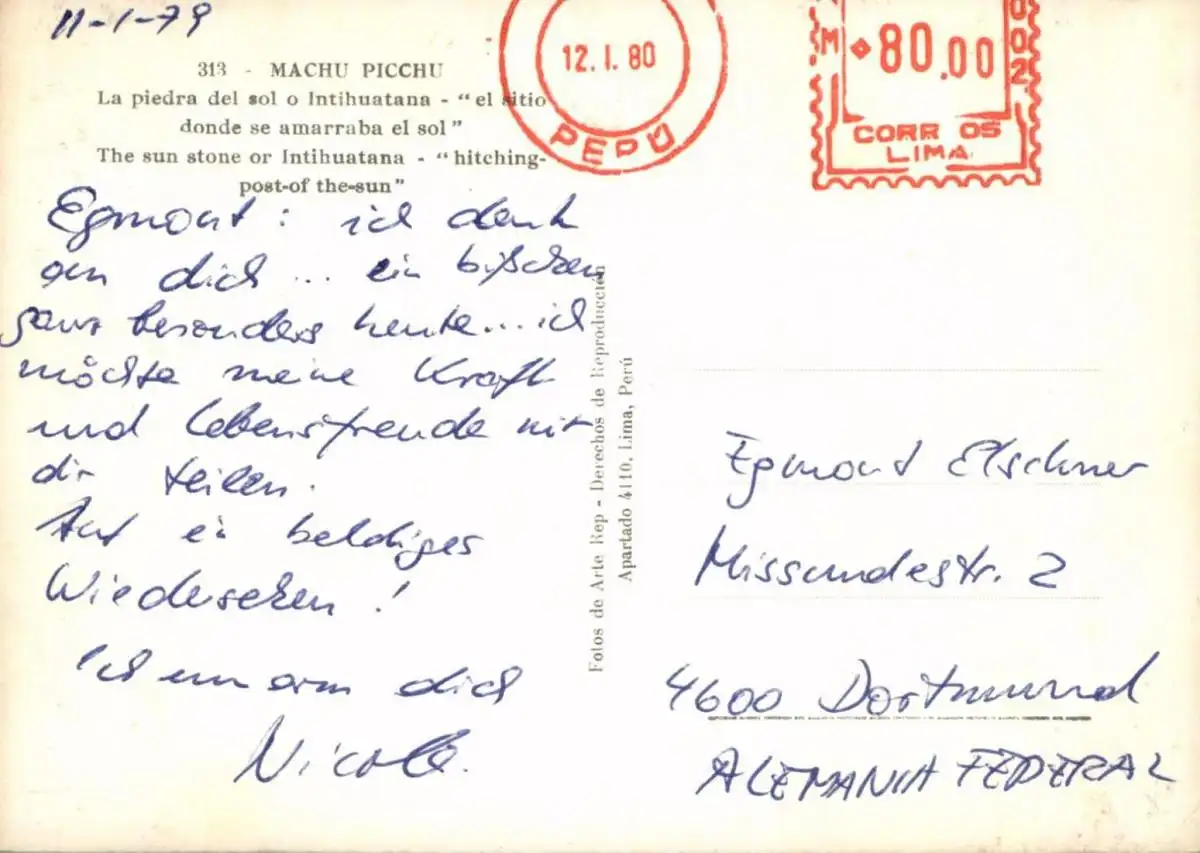 11-1-79
313 - MACHU PICCHU
La piedra del sol o Intihuatana - "el sitio
donde se amarraba el sol"
The sun stone or Intihuatana - "hitching-
post-of the-sun"
Egmont: ich denk
an dich... ein bißchen
ganz besonders heute... ich
möchte meine Kraft
und Lebensfreude mit
dir teilen.
Auf ein baldiges
Wiedersehen!
Ich umarm dich
Nicole.
Fotos de Arte Rep - Derechos de Reproducción
Apartado 4110, Lima, Perú
12.I.80
PERÚ
M
80.00
002
CORR OS
LIMA
Egmont Elschner
Missundestr. 2
4600 Dortmund
ALEMANIA FEDERAL